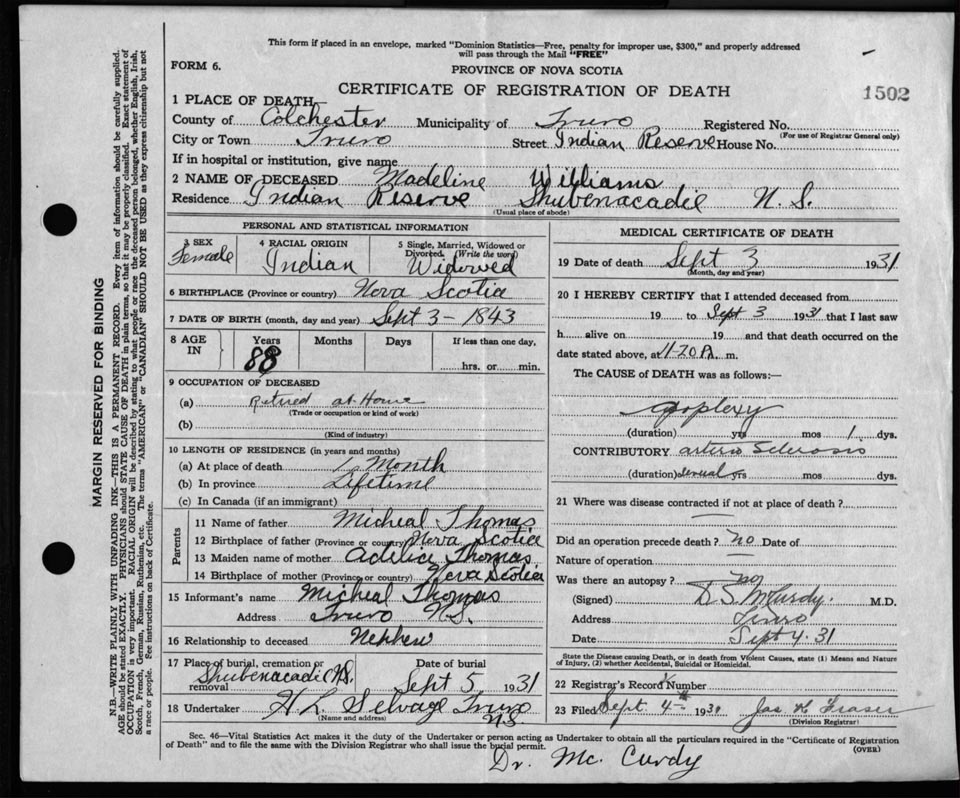 This form if placed in an envelope, marked "Dominion Statistics—Free, penalty for improper use, $300," and properly addressed
will pass through the Mail "FREE"
FORM 6.
PROVINCE OF NOVA SCOTIA
CERTIFICATE OF REGISTRATION OF DEATH
1502
1 PLACE OF DEATH—
County of Colchester Municipality of Truro Registered No.
(For use of Registrar General only)
City or Town Truro Street Indian Reserve House No.
If in hospital or institution, give name
2 NAME OF DECEASED Madeline Williams
Residence Indian Reserve Shubenacadie N. S.
(Usual place of abode)
PERSONAL AND STATISTICAL INFORMATION
3 SEX
Female
4 RACIAL ORIGIN
Indian
5 Single, Married, Widowed or
Divorced. (Write the word)
Widowed
6 BIRTHPLACE (Province or country) Nova Scotia
7 DATE OF BIRTH (month, day and year) Sept 3 - 1843
8 AGE IN
Years
88
Months
Days
If less than one day,
hrs. or min.
9 OCCUPATION OF DECEASED
(a) Retired at Home
(Trade or occupation or kind of work)
(b)
(Kind of industry)
10 LENGTH OF RESIDENCE (in years and months)
(a) At place of death 1 Month
(b) In province Lifetime
(c) In Canada (if an immigrant)
Parents
11 Name of father Micheal Thomas
12 Birthplace of father (Province or country) Nova Scotia
13 Maiden name of mother Thomas
14 Birthplace of mother (Province or country) Nova Scotia
15 Informant's name Micheal Thomas
Address Truro N.S.
16 Relationship to deceased Nephew
17 Place of burial, cremation or
removal Shubenacadie N.S.
Date of burial
Sept 5 1931
18 Undertaker H L Selvage Truro
N.S.
(Name and address)
MEDICAL CERTIFICATE OF DEATH
19 Date of death Sept 3 1931
(Month, day and year)
20 I HEREBY CERTIFY that I attended deceased from
19 to Sept 3 1931 that I last saw
h alive on 19 and that death occurred on the
date stated above, at 11-20 P. m.
The CAUSE of DEATH was as follows:—
Apoplexy
(duration) yrs mos 1 dys.
CONTRIBUTORY arterio Sclerosis
(duration) several yrs mos dys.
21 Where was disease contracted if not at place of death?
Did an operation precede death? no Date of
Nature of operation
Was there an autopsy? no
(Signed) D S McCurdy M.D.
Address Truro
Date Sept 4. 31
State the Disease causing Death, or in death from Violent Causes, state (1) Means and Nature
of Injury, (2) whether Accidental, Suicidal or Homicidal.
22 Registrar's Record Number
23 Filed Sept. 4 1931 Jas H Fraser
(Division Registrar)
Sec. 46—Vital Statistics Act makes it the duty of the Undertaker or person acting as Undertaker to obtain all the particulars required in the "Certificate of Registration
of Death" and to file the same with the Division Registrar who shall issue the burial permit.
(OVER)
Dr. Mc. Curdy
MARGIN RESERVED FOR BINDING
N.B.—WRITE PLAINLY WITH UNFADING INK—THIS IS A PERMANENT RECORD. Every item of information should be carefully supplied.
AGE should be stated EXACTLY. PHYSICIANS should STATE CAUSE OF DEATH in plain terms, so that it may be properly classified. Exact statement of
OCCUPATION is very important. RACIAL ORIGIN will be described by stating to what people or race the deceased person belonged, whether English, Irish,
Scotch, French, German, Russian, Ruthenian, etc. The terms "AMERICAN" or "CANADIAN" SHOULD NOT BE USED as they express citizenship but not
a race or people. Fee instructions on back of Certificate.